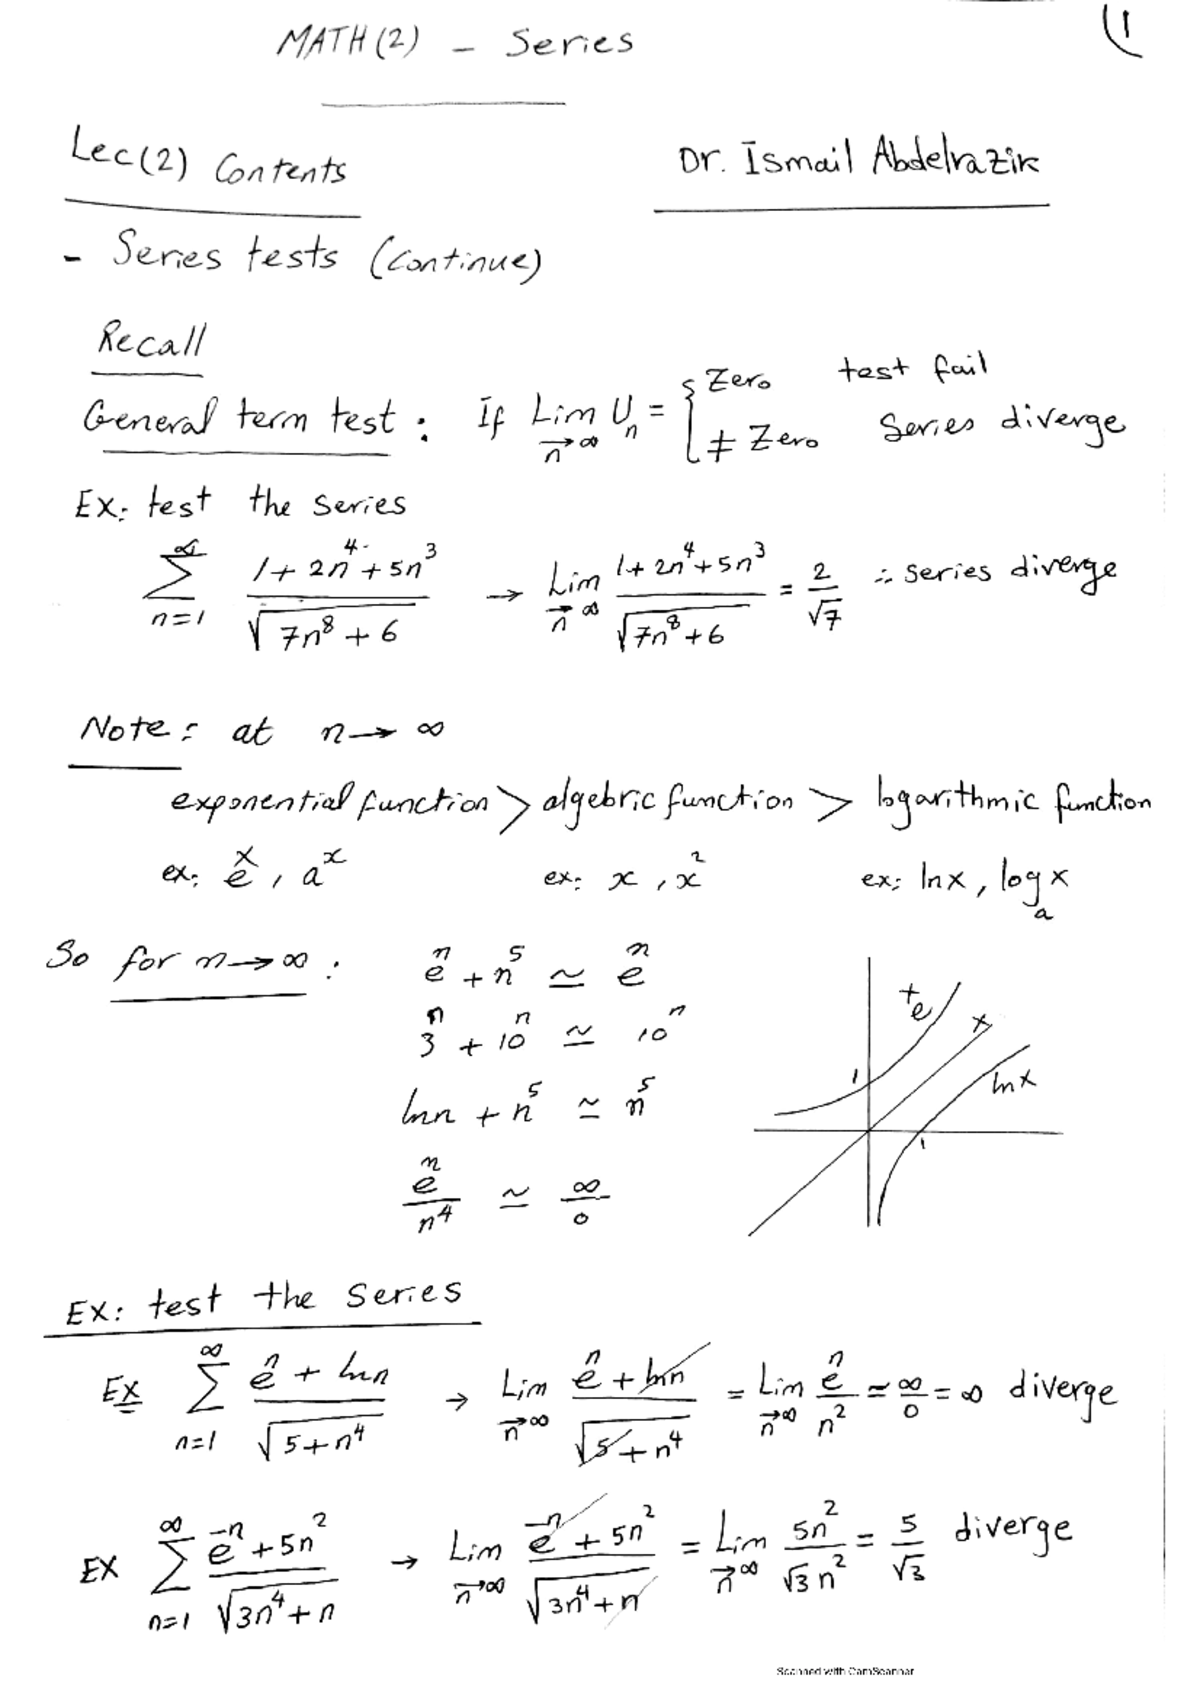 MATH(2) - Series
(1
Lec(2) Contents
Dr. Ismail Abdelrazik
- Series tests (continue)
Recall
General term test : If Lim n→∞ Uₙ = { Zero test fail
≠ Zero Series diverge
EX: test the series
∞ Σ n=1 (1 + 2n⁴ + 5n³)/√(7n⁸ + 6) → Lim n→∞ (1 + 2n⁴ + 5n³)/√(7n⁸ + 6) = 2/√7 ∴ series diverge
Note: at n → ∞
exponential function > algebric function > logarithmic function
ex: eˣ, aˣ ex: x, x² ex: lnx, logₐx
So for n → ∞ :
eⁿ + n⁵ ≃ eⁿ
3ⁿ + 10ⁿ ≃ 10ⁿ
lnn + n⁵ ≃ n⁵
eⁿ/n⁴ ≃ ∞/0
eˣ
x
lnx
1
1
EX: test the series
EX ∞ Σ n=1 (eⁿ + lnn)/√(5 + n⁴) → Lim n→∞ (eⁿ + lnn)/√(5 + n⁴) = Lim n→∞ eⁿ/n² = ∞/0 = ∞ diverge
EX ∞ Σ n=1 (e⁻ⁿ + 5n²)/√(3n⁴ + n) → Lim n→∞ (e⁻ⁿ + 5n²)/√(3n⁴ + n) = Lim n→∞ 5n²/√3 n² = 5/√3 diverge
Scanned with CamScanner